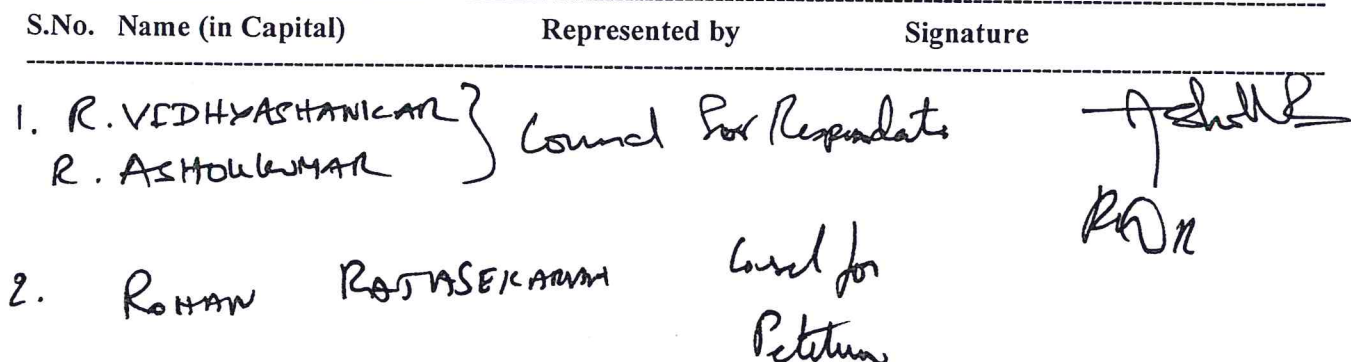 S.No. Name (in Capital) Represented by Signature
1. R. VIDHYASHANKAR } Counsel for Respondents
R. ASHOKKUMAR
2. ROHAN RAJASEKARAN Counsel for
Petitioner